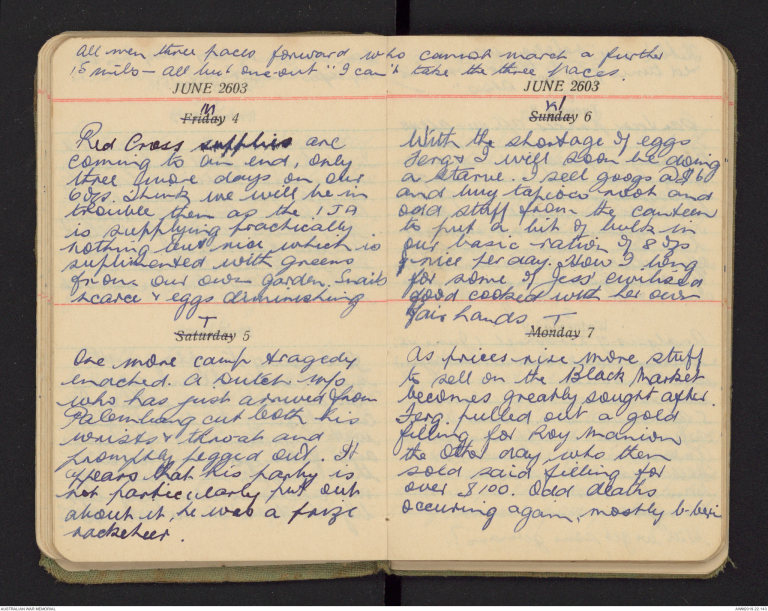 All men three paces forward who cannot march a further
15 mils – all but one-out "I can't take the three paces.
JUNE 2603
M
Friday 4
Red Cross supplies are
coming to an end, only
three more days on our
6ozs. I think we will be in
trouble then as the IJA
is supplying practically
nothing but rice which is
suplimented with greens
from our own garden. Snails
scarce & eggs diminishing
T
Saturday 5
One more camp tragedy
enacted. A Dutch
who has just arrived from
Palembang cut both his
wrists & throat and
promptly pegged out. It
appears that his party is
not particularly put out
about it, he was a prize
racketeer.
JUNE 2603
W
Sunday 6
With the shortage of eggs
Ferg & I will soon be doing
a starve. I sell googs at
and buy tapioca root and
odd stuff from the canteen
to put a bit of bulk in
our basic ration of 8 ozs
rice per day. How I long
for some of Jess' civilised
food cooked with her own
fair hands
T
Monday 7
As prices rise more stuff
to sell on the Black Market
becomes greatly sought after.
Ferg. pulled out a gold
filling for Roy Manion
the other day, who then
sold said filling for
over $100. Odd deaths
occuring again, mostly b-beri
AUSTRALIAN WAR MEMORIAL